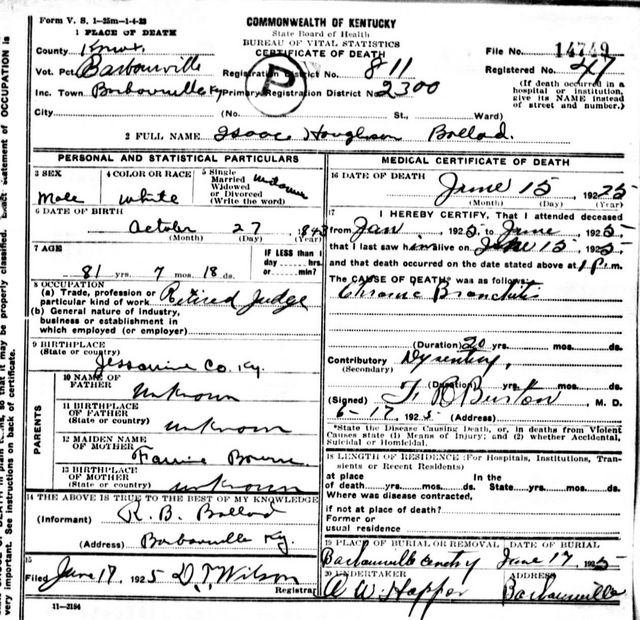 Form V. S. 1-25m-1-4-23
COMMONWEALTH OF KENTUCKY
1 PLACE OF DEATH
State Board of Health
BUREAU OF VITAL STATISTICS
CERTIFICATE OF DEATH
County Knox
File No. 14749
Vot. Pct. Barbourville Registration District No. 811
Registered No. 47
Inc. Town Barbourville Ky Primary Registration District No. 2300
P
(If death occurred in a hospital or institution, give its NAME instead of street and number.)
City (No. St., Ward)
2 FULL NAME Isaac Ballad.
PERSONAL AND STATISTICAL PARTICULARS
3 SEX Male
4 COLOR OR RACE white
5 Single Married Widowed or Divorced (Write the word) Widower
6 DATE OF BIRTH
October 27, 1843
(Month) (Day) (Year)
7 AGE
81 yrs. 7 mos. 18 ds.
IF LESS than 1 day hrs. or min.?
8 OCCUPATION
(a) Trade, profession or particular kind of work Retired Judge
(b) General nature of industry, business or establishment in which employed (or employer)
9 BIRTHPLACE
(State or country) Jessamine Co. Ky.
PARENTS
10 NAME OF FATHER unknown
11 BIRTHPLACE OF FATHER (State or country) unknown
12 MAIDEN NAME OF MOTHER Fannie Bourne
13 BIRTHPLACE OF MOTHER (State or country) unknown
14 THE ABOVE IS TRUE TO THE BEST OF MY KNOWLEDGE
(Informant) R. B. Ballad
(Address) Barbourville Ky.
15
Filed June 17, 1925 D. T. Wilson
Registrar
11-3184
MEDICAL CERTIFICATE OF DEATH
16 DATE OF DEATH
June 15, 1925
(Month) (Day) (Year)
17 I HEREBY CERTIFY, That I attended deceased
from Jan 1925, to June 1925
that I last saw him alive on June 15, 1925
and that death occurred on the date stated above at 1 P. m.
The CAUSE OF DEATH* was as follows:
Chronic Bronchitis
(Duration) 20 yrs. mos. ds.
Contributory Dysentery,
(Secondary)
(Duration) yrs. mos. ds.
(Signed) T. B Burton, M. D.
6-17, 1925 (Address)
*State the Disease Causing Death, or, in deaths from Violent Causes state (1) Means of Injury; and (2) whether Accidental, Suicidal or Homicidal.
18 LENGTH OF RESIDENCE (For Hospitals, Institutions, Transients or Recent Residents)
at place of death yrs. mos. ds. In the State yrs. mos. ds.
Where was disease contracted, if not at place of death?
Former or usual residence
19 PLACE OF BURIAL OR REMOVAL DATE OF BURIAL
Barbourville June 17 1925
20 UNDERTAKER ADDRESS
W. Hopper Barbourville
very important. See instructions on back of certificate.
so that it may be properly classified. Exact statement of OCCUPATION is